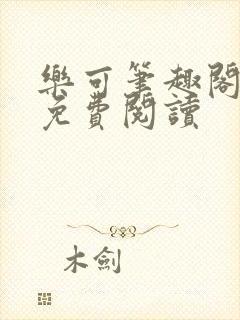 樂可筆趣閣
免費閱讀
木劍